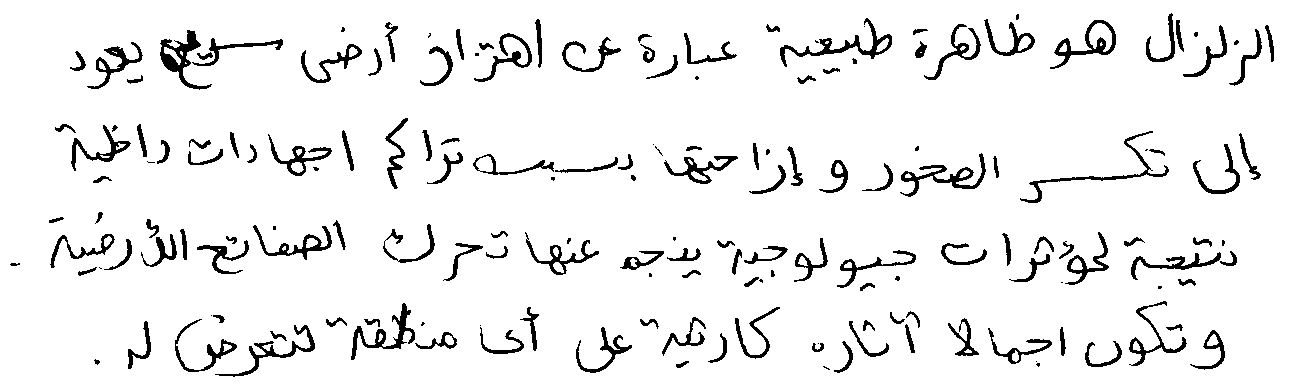 الزلزال هو ظاهرة طبيعية عبارة عن اهتزاز أرضى سريع يعود
إلى تكسر الصخور و إزاحتها بسبب تراكم اجهادات داخلية
نتيجة لمؤثرات جيولوجية ينجم عنها تحرك الصفائح الأرضية .
و تكون اجمالا آثاره كارثية على أى منطقة تتعرض له .